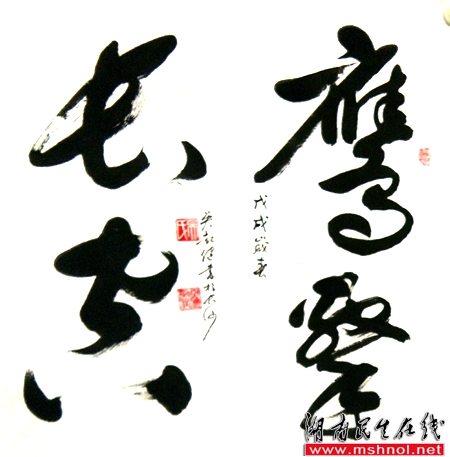 鹰擊
长空
戊戌歲春
湖南民生在线
www.mshnol.net